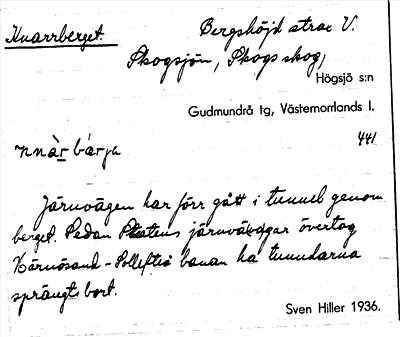 Kvarrberget. Bergshöjd strax V.
Skogsjön, Skogs skog,
Högsjö s:n
Gudmundrå tg, Västernorrlands l.
441
Järnvägen har förr gått i tunnel genom
berget. Sedan Statens järnvägar övertog
Härnösand-Sollefteå banan ha tunnlarna
sprängts bort.
Sven Hiller 1936.